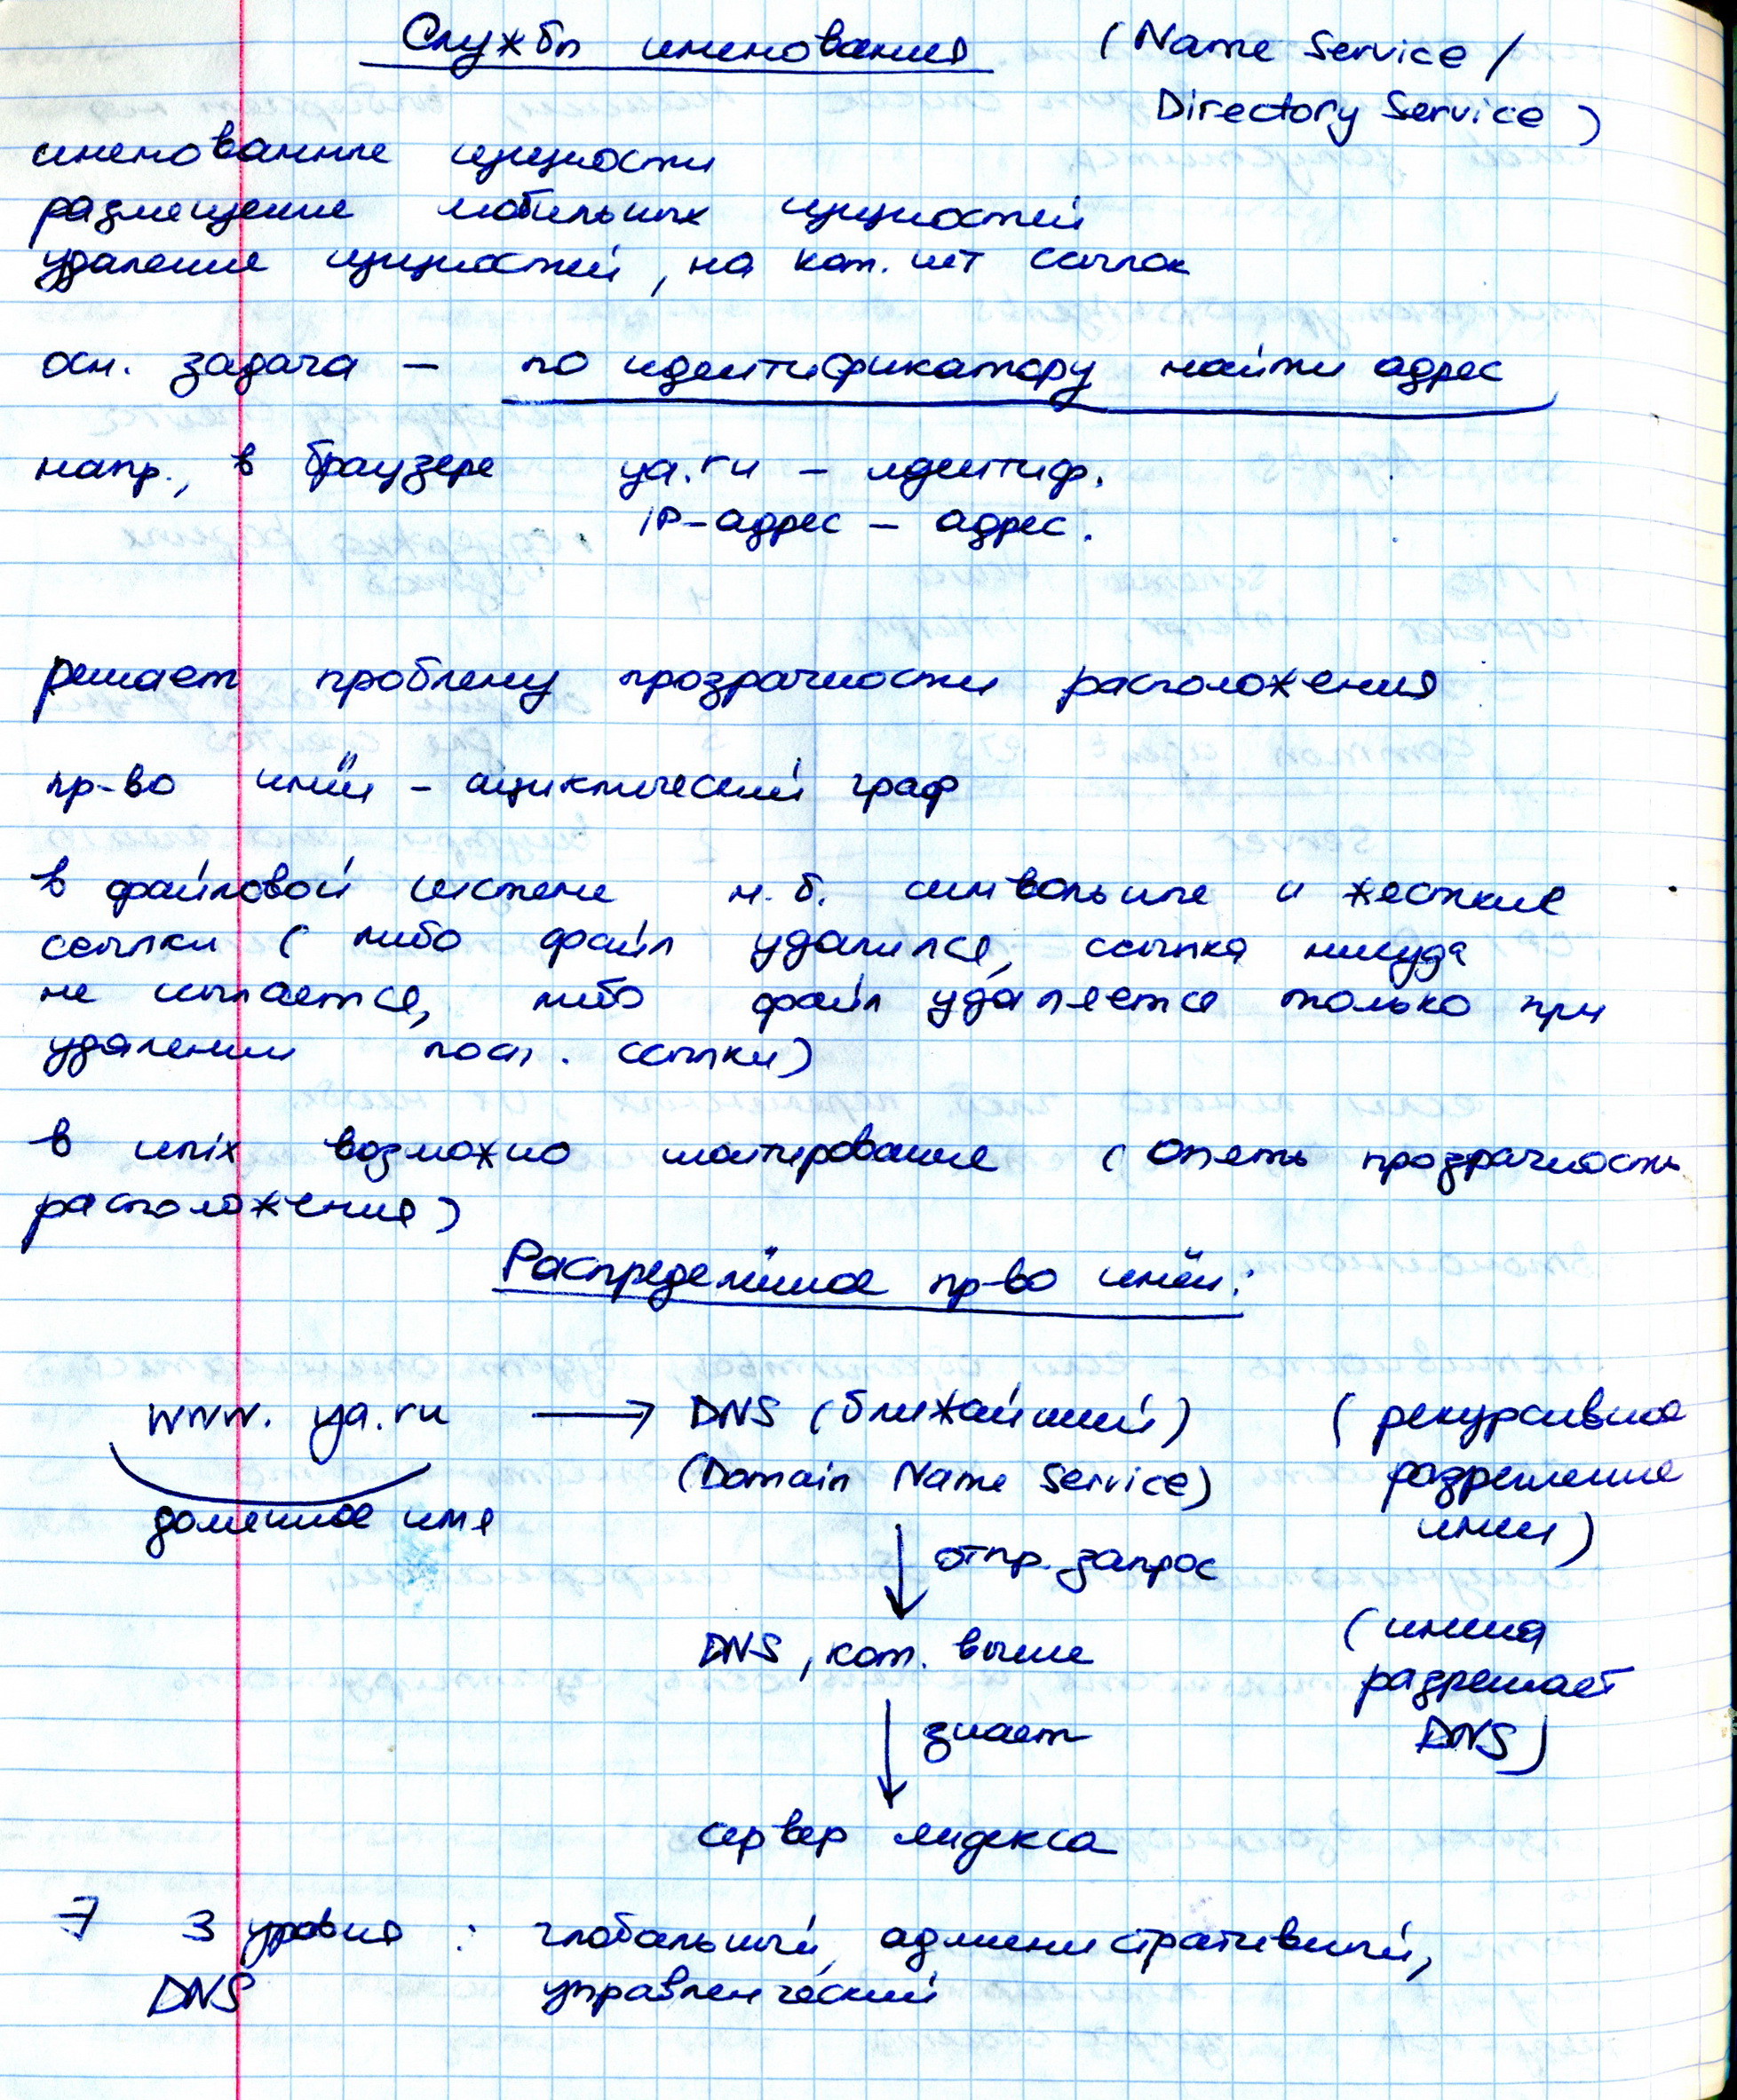 Службы именования (Name Service /
Directory Service)
именованные сущности
размещение мобильных сущностей
удаление сущностей, на кот. нет ссылок
осн. задача – по идентификатору найти адрес
напр., в браузере ya.ru – идентиф.
IP-адрес – адрес.
решает проблему прозрачности расположения
пр-во имён – ациклический граф
в файловой системе м.б. символьные и жесткие
ссылки (либо файл удалился, ссылка никуда
не ссылается, либо файл удаляется только при
удалении посл. ссылки)
в unix возможно монтирование (опять прозрачность
расположения)
Распределённое пр-во имён:
www.ya.ru → DNS (ближайший) (рекурсивное
(Domain Name Service) разрешение
доменное имя имен)
↓ отпр. запрос
DNS, кот. выше (имена
разрешает
↓ знает DNS)
сервер яндекса
∃ 3 уровня : глобальный, административный,
DNS управленческий